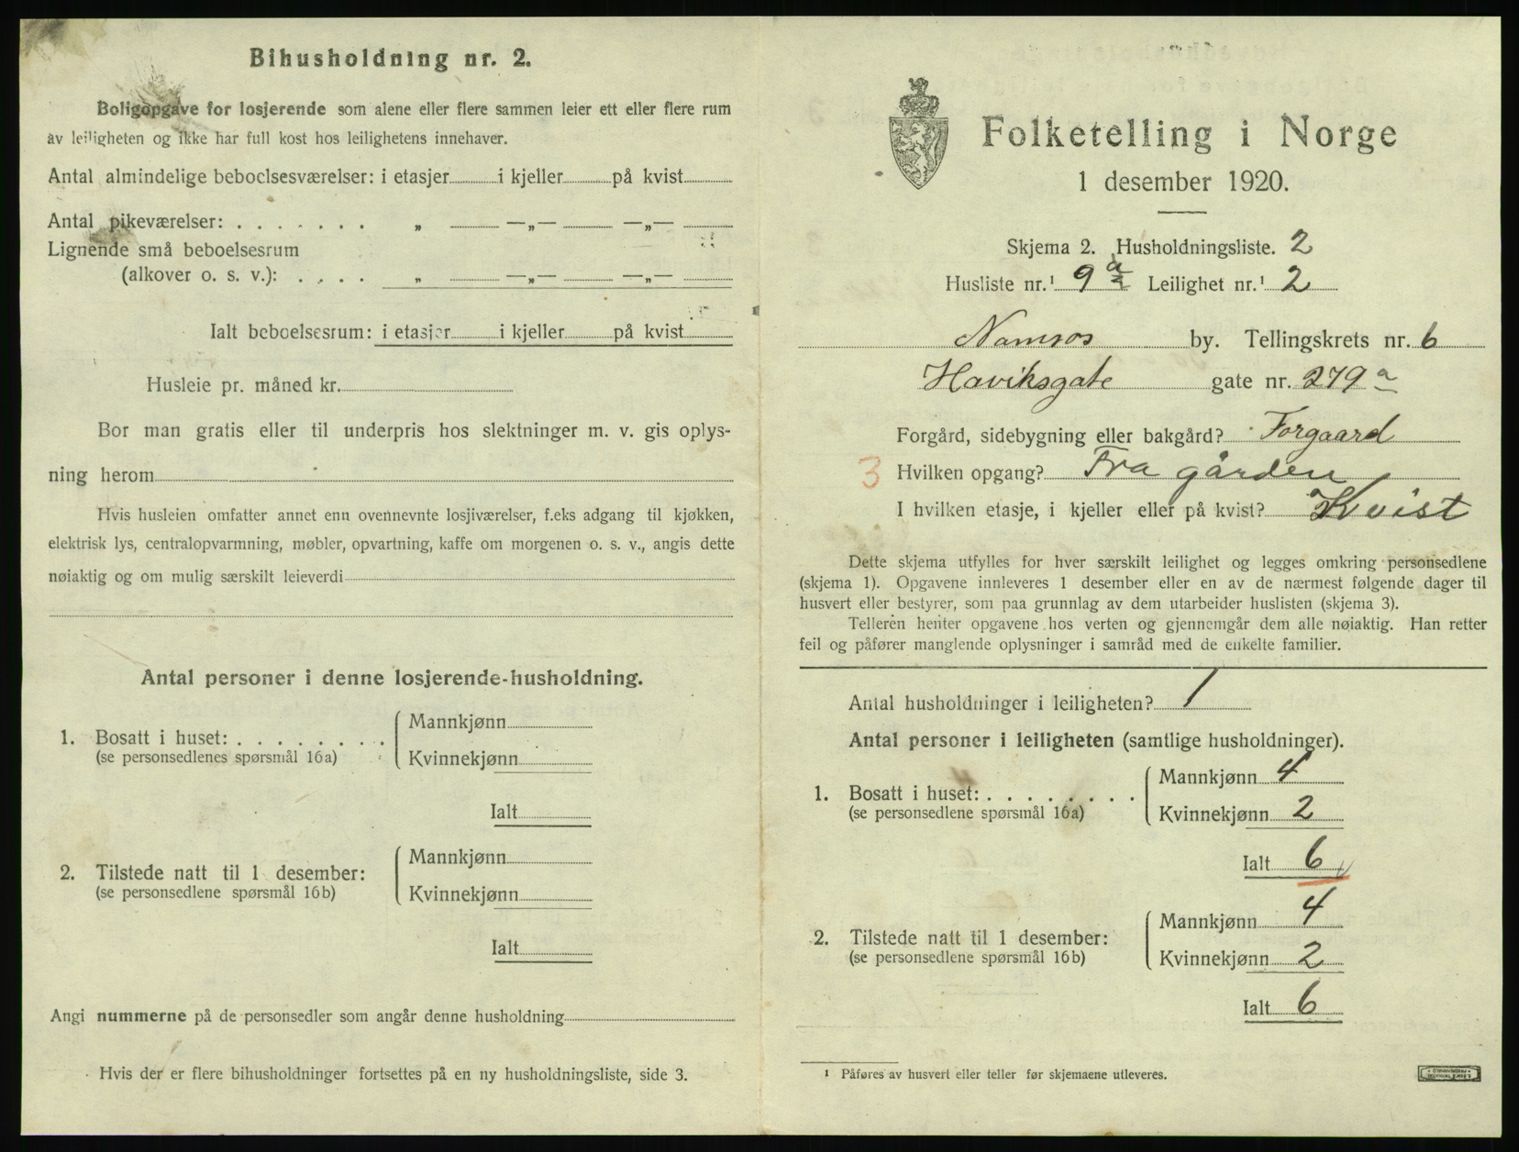 Bihusholdning nr. 2.
Boligopgave for losjerende som alene eller flere sammen leier ett eller flere rum
av leiligheten og ikke har full kost hos leilighetens innehaver.
Antal almindelige beboelsesværelser: i etasjer i kjeller på kvist
Antal pikeværelser: . . . . . . . „ —„— —„—
Lignende små beboelsesrum
(alkover o. s. v.): . . . . „ —„— —„—
Ialt beboelsesrum: i etasjer i kjeller på kvist
Husleie pr. måned kr.
Bor man gratis eller til underpris hos slektninger m. v. gis oplys-
ning herom
Hvis husleien omfatter annet enn ovennevnte losjiværelser, f.eks adgang til kjøkken,
elektrisk lys, centralopvarmning, møbler, opvartning, kaffe om morgenen o. s. v., angis dette
nøiaktig og om mulig særskilt leieverdi
Antal personer i denne losjerende-husholdning.
1. Bosatt i huset: . . . . . . . .
(se personsedlenes spørsmål 16a)
Mannkjønn
Kvinnekjønn
Ialt
2. Tilstede natt til 1 desember:
(se personsedlene spørsmål 16b)
Mannkjønn
Kvinnekjønn
Ialt
Angi nummerne på de personsedler som angår denne husholdning
Hvis der er flere bihusholdninger fortsettes på en ny husholdningsliste, side 3.
Folketelling i Norge
1 desember 1920.
Skjema 2. Husholdningsliste. 2
Husliste nr.¹ 9 a Leilighet nr.¹ 2
Namsos by. Tellingskrets nr. 6
Haviksgate gate nr. 279 a
Forgård, sidebygning eller bakgård? Forgaard
3 Hvilken opgang? Fra gården
I hvilken etasje, i kjeller eller på kvist? Kvist
Dette skjema utfylles for hver særskilt leilighet og legges omkring personsedlene
(skjema 1). Opgavene innleveres 1 desember eller en av de nærmest følgende dager til
husvert eller bestyrer, som paa grunnlag av dem utarbeider huslisten (skjema 3).
Telleren henter opgavene hos verten og gjennemgår dem alle nøiaktig. Han retter
feil og påfører manglende oplysninger i samråd med de enkelte familier.
Antal husholdninger i leiligheten? 1
Antal personer i leiligheten (samtlige husholdninger).
1. Bosatt i huset: . . . . . . . .
(se personsedlene spørsmål 16a)
Mannkjønn 4
Kvinnekjønn 2
Ialt 6
2. Tilstede natt til 1 desember:
(se personsedlene spørsmål 16b)
Mannkjønn 4
Kvinnekjønn 2
Ialt 6
¹ Påføres av husvert eller teller før skjemaene utleveres.